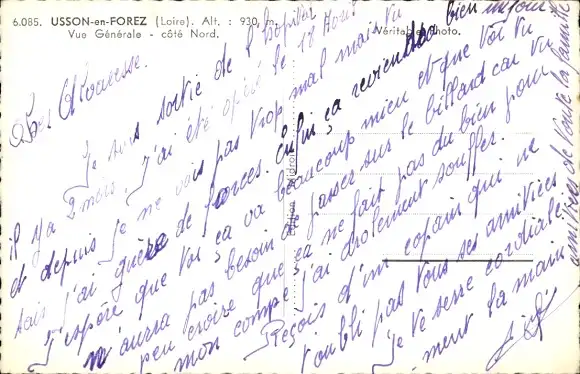 6.085. USSON-en-FOREZ (Loire). Alt. : 930 m.
Vue Générale - côté Nord.
Véritable Photo.
Je suis sortie de l'hopital
il y a 2 mois. J'ai été opéré le 18 Aout
et depuis je ne vais pas trop mal mais tu
sais j'ai guère de forces. Enfin, ça reviendra bien un jour
J'espère que toi ça va beaucoup mieux et que toi tu
n'auras pas besoin de passer sur le billard car tu
peu croire que ça ne fait pas du bien pour
mon compte j'ai drolement souffer.
Reçois d'un copain qui ne
t'oubli pas tous ses amitiées
Je te serre cordiale
ment la main
amitiées de toute la famille